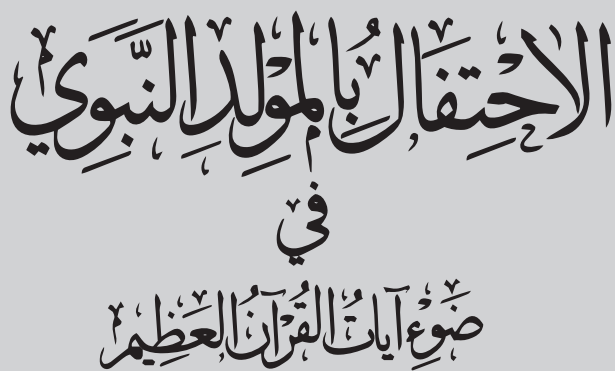 الاحْتِفَالُ بِالمَوْلِدِ النَّبَوِي
في
ضَوْءِ آيَاتُ القُرْآنُ العَظِيمِ